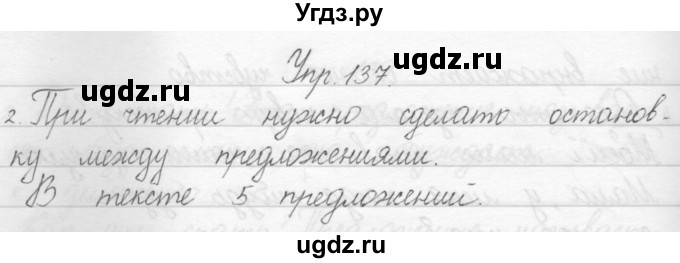 Угдз.ру
ugdz.ru
Упр. 137.
ugdz.ru
ugdz.ru
2. При чтении нужно сделать останов-
ку между предложениями.
В тексте 5 предложений.
ugdz.ru
ugdz.ru